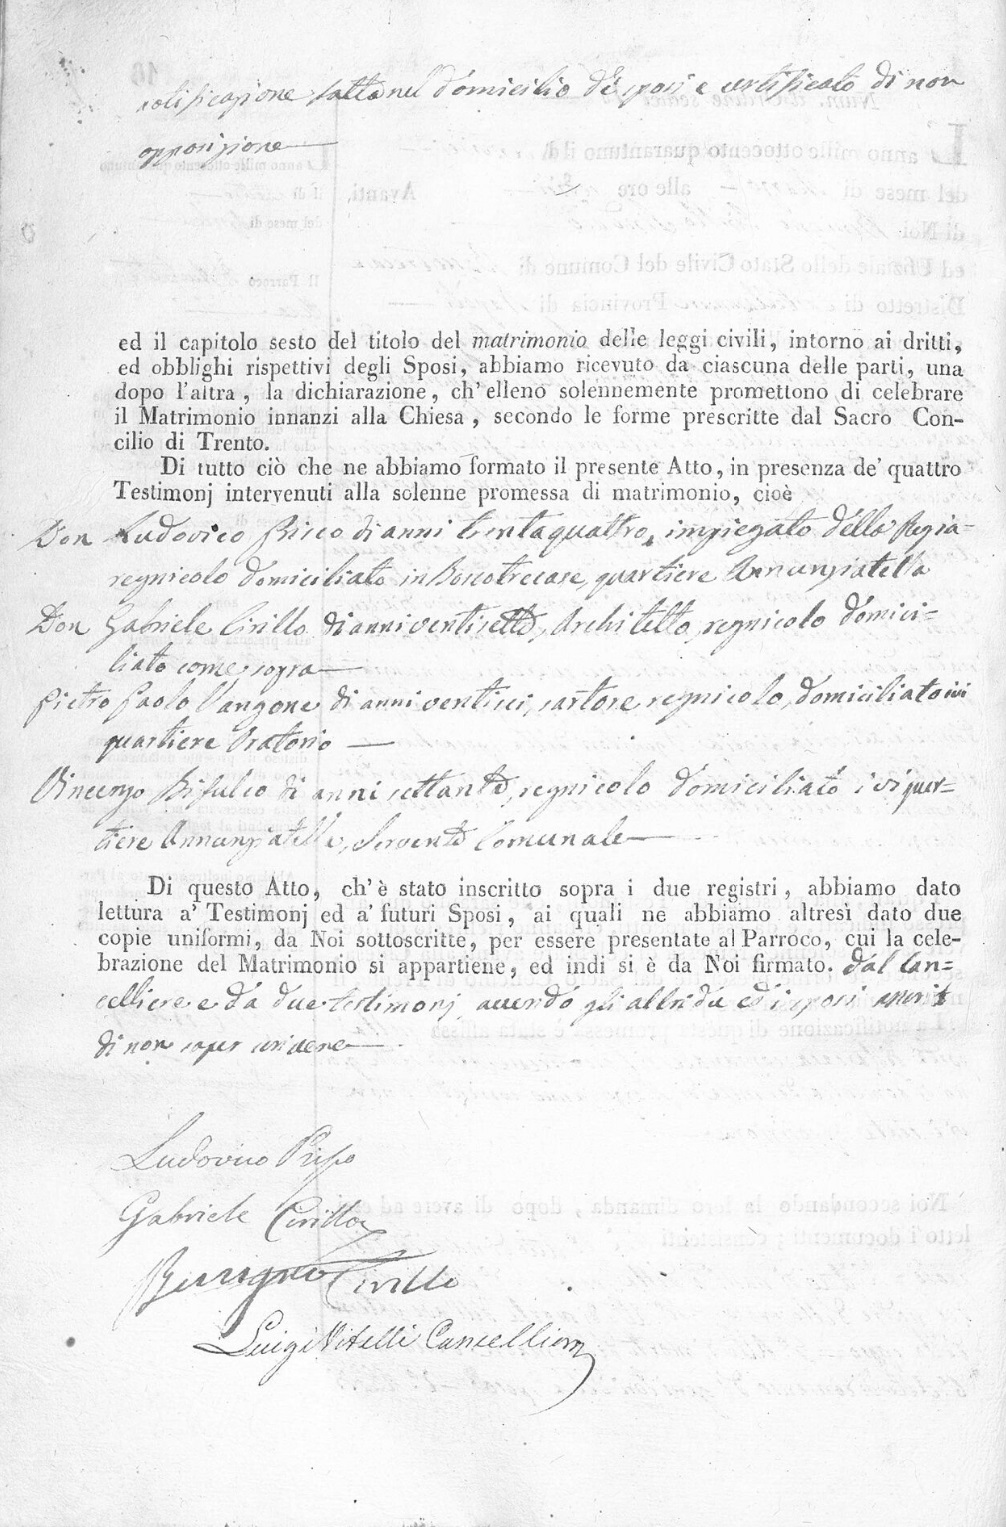 notificazione fatta nel domicilio di sposi e certificato di non
opposizione
ed il capitolo sesto del titolo del matrimonio delle leggi civili, intorno ai dritti,
ed obblighi rispettivi degli Sposi, abbiamo ricevuto da ciascuna delle parti, una
dopo l'altra, la dichiarazione, ch'elleno solennemente promettono di celebrare
il Matrimonio innanzi alla Chiesa, secondo le forme prescritte dal Sacro Con-
cilio di Trento.
Di tutto ciò che ne abbiamo formato il presente Atto, in presenza de' quattro
Testimonj intervenuti alla solenne promessa di matrimonio, cioè
Don Ludovico di anni trentaquattro, impiegato della Regia=
regnicolo domiciliato in Boscotrecase quartiere Annunziatella
Don Gabriele Cirillo di anni ventisette, Architetto, regnicolo domici=
liato come sopra
Pietro Paolo Vangone di anni ventisei, sartore regnicolo, domiciliato ivi
quartiere Oratorio
Vincenzo Bifulco di anni settanta, regnicolo domiciliato ivi quar=
tiere Annunziatella, Servente Comunale
Di questo Atto, ch'è stato inscritto sopra i due registri, abbiamo dato
lettura a' Testimonj ed a' futuri Sposi, ai quali ne abbiamo altresì dato due
copie uniformi, da Noi sottoscritte, per essere presentate al Parroco, cui la cele-
brazione del Matrimonio si appartiene, ed indi si è da Noi firmato. dal Can=
celliere e da due testimonj, avendo gli altri due ed i sposi asserito
di non saper scrivere
Ludovico
Gabriele Cirillo
Cirillo
Luigi Vitelli Cancelliere